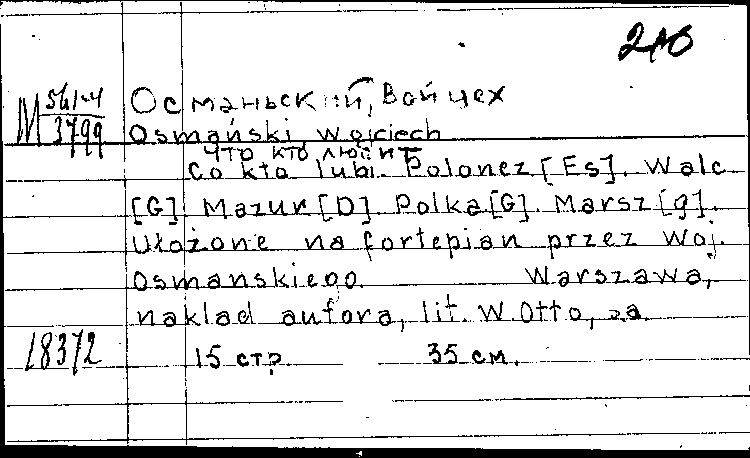 210
M 561-4
3799
Османьский, Войцех
Osmański Wojciech
что кто любит
Co kto lubi. Polonez [Es]. Walc
[G]. Mazur [D]. Polka [G]. Marsz [g].
Ułożone na fortepian przez Woj.
Osmańskiego. Warszawa,
nakład autora, lit. W. Otto,
18372
15 стр 35 см.